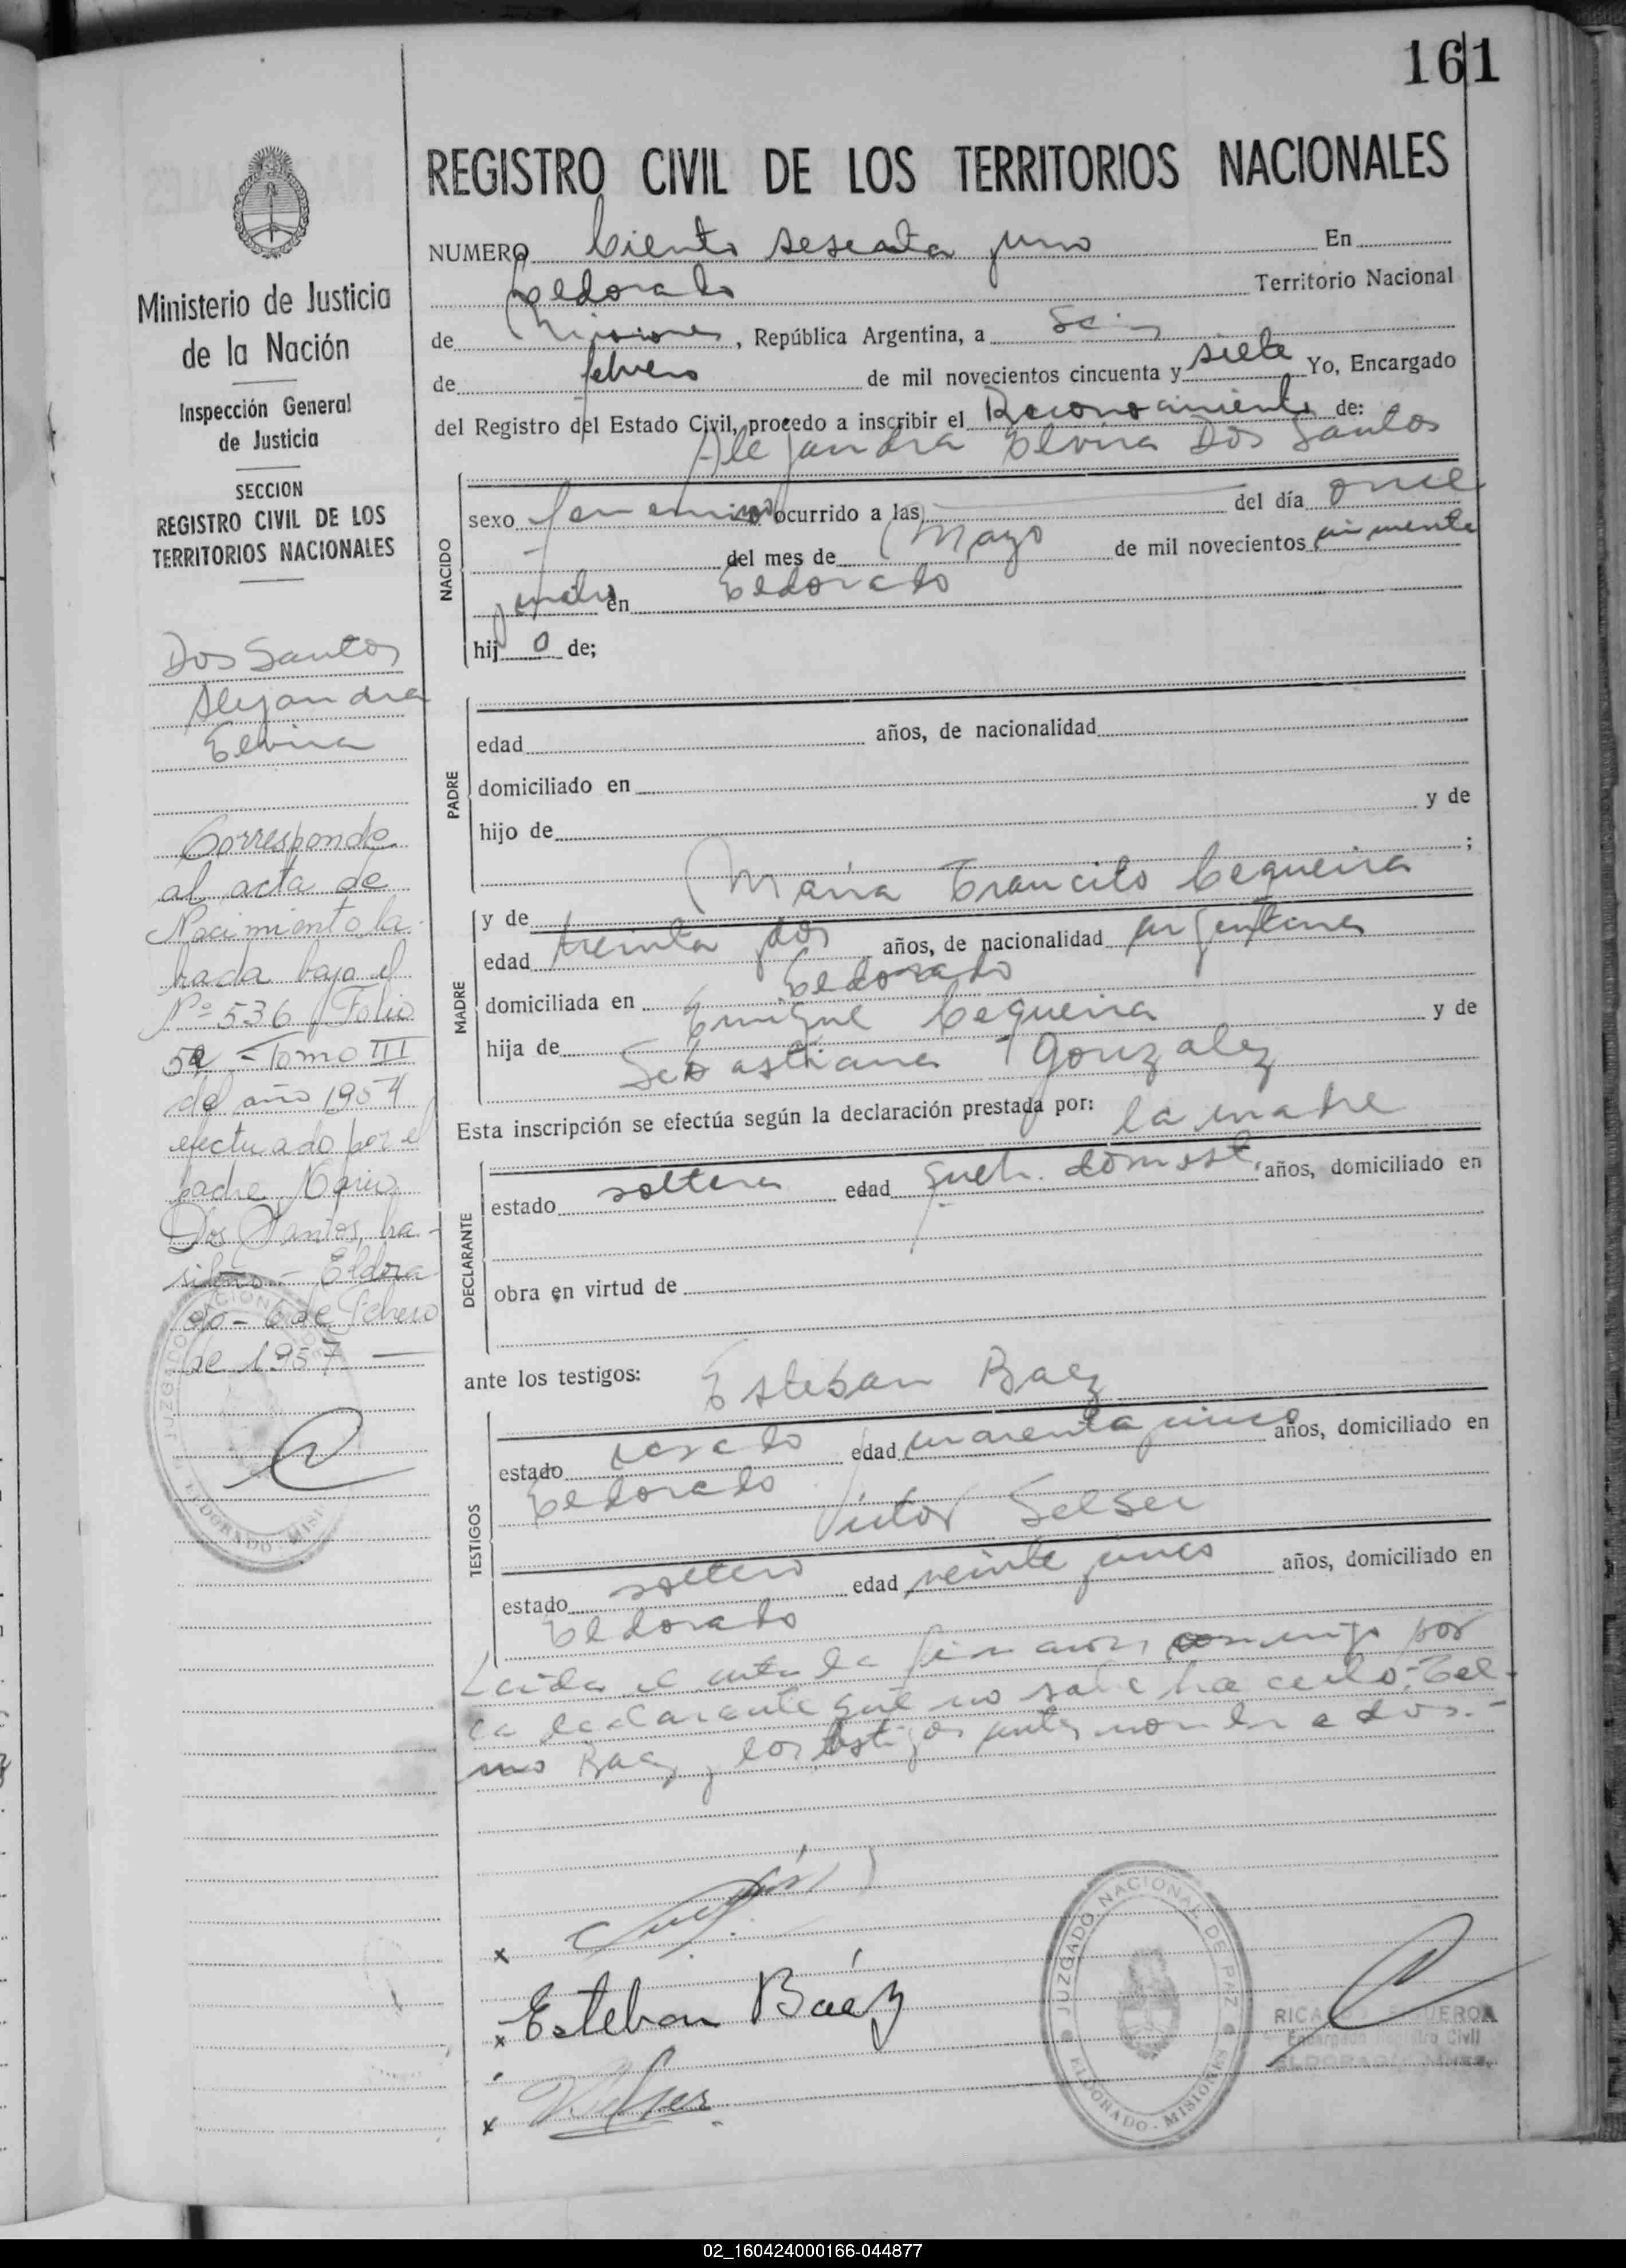 161
REGISTRO CIVIL DE LOS TERRITORIOS NACIONALES
NUMERO Ciento sesenta y uno En
Eldorado Territorio Nacional
de Misiones, República Argentina, a Seis
de febrero de mil novecientos cincuenta y siete Yo, Encargado
del Registro del Estado Civil, procedo a inscribir el Reconocimiento de:
Alejandra Elvira Dos Santos
NACIDO
sexo femenino ocurrido a las del día once
del mes de Mayo de mil novecientos cincuenta
y cuatro en Eldorado
hij o de;
PADRE
edad años, de nacionalidad
domiciliado en
hijo de y de
;
MADRE
y de María Trancito Cequeira
edad treinta y dos años, de nacionalidad argentina
domiciliada en Eldorado
hija de Enrique Cequeira y de
Sebastiana Gonzalez
Esta inscripción se efectúa según la declaración prestada por: la madre
DECLARANTE
estado soltera edad queh. domest. años, domiciliado en
obra en virtud de
ante los testigos: Esteban Baez
TESTIGOS
estado casado edad cuarenta y cinco años, domiciliado en
Eldorado
Victor Selser
estado soltero edad veinte y cinco años, domiciliado en
Eldorado
Leida el acta la firmaron conmigo por
la declarante que no sabe hacerlo: Tel-
mo Baez y los testigos antes nombrados.-
x
x Esteban Baéz
x VSelser
JUZGADO NACIONAL DE PAZ
ELDORADO - MISIONES
Encargado Registro Civil
Ministerio de Justicia
de la Nación
Inspección General
de Justicia
SECCION
REGISTRO CIVIL DE LOS
TERRITORIOS NACIONALES
Dos Santos
Alejandra
Elvira
Corresponde
al acta de
Nacimiento la-
brada bajo el
Nº 536 Folio
- Tomo III
del año 1954
efectuado por el
padre Mario
Dos Santos, bra-
sileño - Eldora-
do - 6 de Febrero
de 1957 —
JUZGADO NACIONAL
ELDORADO - MISI
02_160424000166-044877